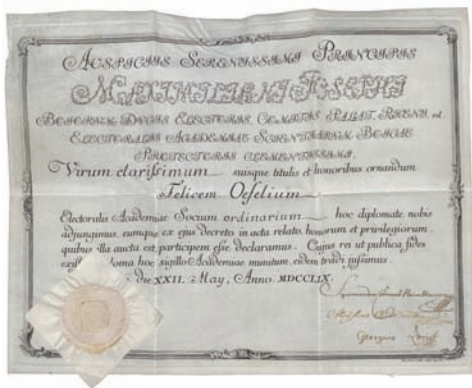 AUSPICIIS SERENISSIMI PRINCIPIS
MAXIMILIANI JOSEPHI
BOJORUM DUCIS ELECTORIS, COMITIS PALAT. RHENI, et.
ELECTORALIS ACADEMIAE SCIENTIARUM BOICAE
PROTECTORIS CLEMENTISSIMI.
Virum clarißimum suisque titulis et honoribus ornandum
Felicem Oefelium
Electoralis Academiae Socium ordinarium hoc diplomate nobis
adjungimus, eumque ex ejus decreto in acta relato honorum et privilegiorum,
quibus illa aucta est participem eße declaramus. Cujus rei ut publica fides
diploma hoc sigillo Academiae munitum, eidem tradi jußimus.
die XXII. May, Anno MDCCLIX.
Georgius